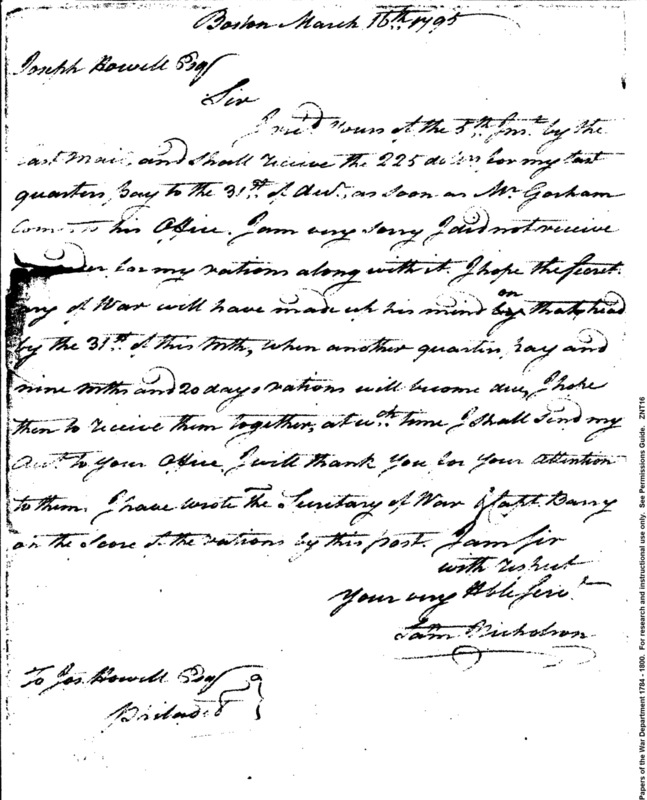 Boston March 16th 1795
Joseph Howell Esqr
Sir
I rec'd Yours of the 5th Inst. by the
Last Mail, and shall receive the 225 dollrs for my last
quarters pay to the 31st of Decr., as soon as Mr. Gorham
Comes to his Office. I am very sorry I did not receive
for my rations along with it. I hope the Secret
ary of War will have made up his mind on that head
by the 31st of this Mth, when another quarters pay and
nine Mths and 20 days rations will become due, I hope
then to receive them together, at wch. time I shall send my
Acct. to Your Office. I will thank You for Your Attention
to them. I have wrote The Secretary of War & Capt. Barry
on the Score of the rations by this post. I am Sir
with respect
Your very Hble Servt
Saml Nicholson
To Jos. Howell Esqr
Philadea
Papers of the War Department 1784 - 1800. For research and instructional use only. See Permissions Guide. ZNT16